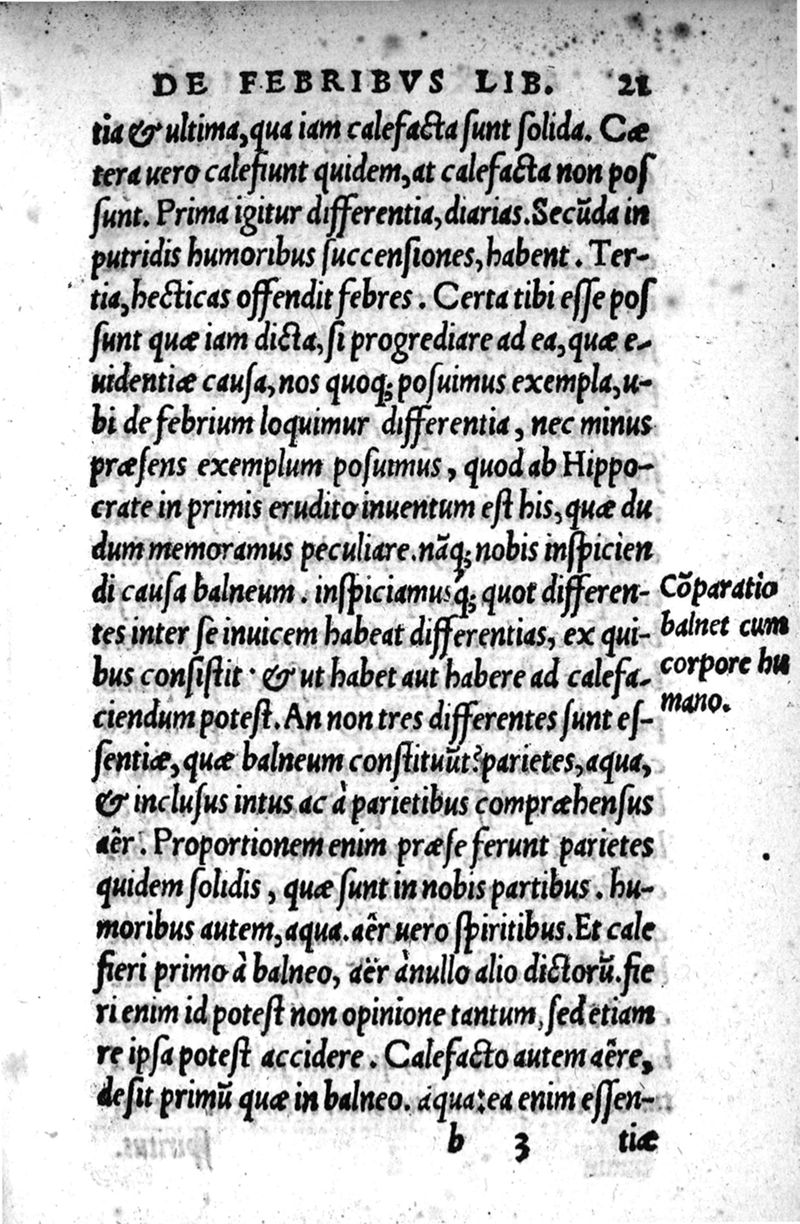 DE FEBRIBVS LIB. 21
tia & ultima, qua iam calefacta ſunt ſolida. Cæ
tera uero calefiunt quidem, at calefacta non poſ
ſunt. Prima igitur differentia, diarias. Secũda in
putridis humoribus ſuccenſiones, habent. Ter-
tia, hecticas offendit febres. Certa tibi eſſe poſ
ſunt quæ iam dicta, ſi progrediare ad ea, quæ e-
uidentiæ cauſa, nos quoq; poſuimus exempla, u-
bi de febrium loquimur differentia, nec minus
præſens exemplum poſuimus, quod ab Hippo-
crate in primis erudito inuentum eſt his, quæ du
dum memoramus peculiare. nãq; nobis inſpicien
di cauſa balneum. inſpiciamusq́; quot differen-
tes inter ſe inuicem habeat differentias, ex qui-
bus conſiſtit · & ut habet aut habere ad calefa-
ciendum poteſt. An non tres differentes ſunt eſ-
ſentiæ, quæ balneum conſtituũt? parietes, aqua,
& incluſus intus ac à parietibus compræhenſus
aêr. Proportionem enim præ ſe ferunt parietes
quidem ſolidis, quæ ſunt in nobis partibus. hu-
moribus autem, aqua. aêr uero ſpiritibus. Et cale
fieri primo à balneo, aër à nullo alio dictorũ. fie
ri enim id poteſt non opinione tantum, ſed etiam
re ipſa poteſt accidere. Calefacto autem aêre,
deſit primũ quæ in balneo. aqua: ea enim eſſen-
b 3 tiæ
Cõparatio
balnei cum
corpore hu
mano.